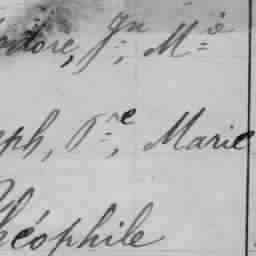 odore, Jn, Mie
eph, Pre, Marie
Théophile